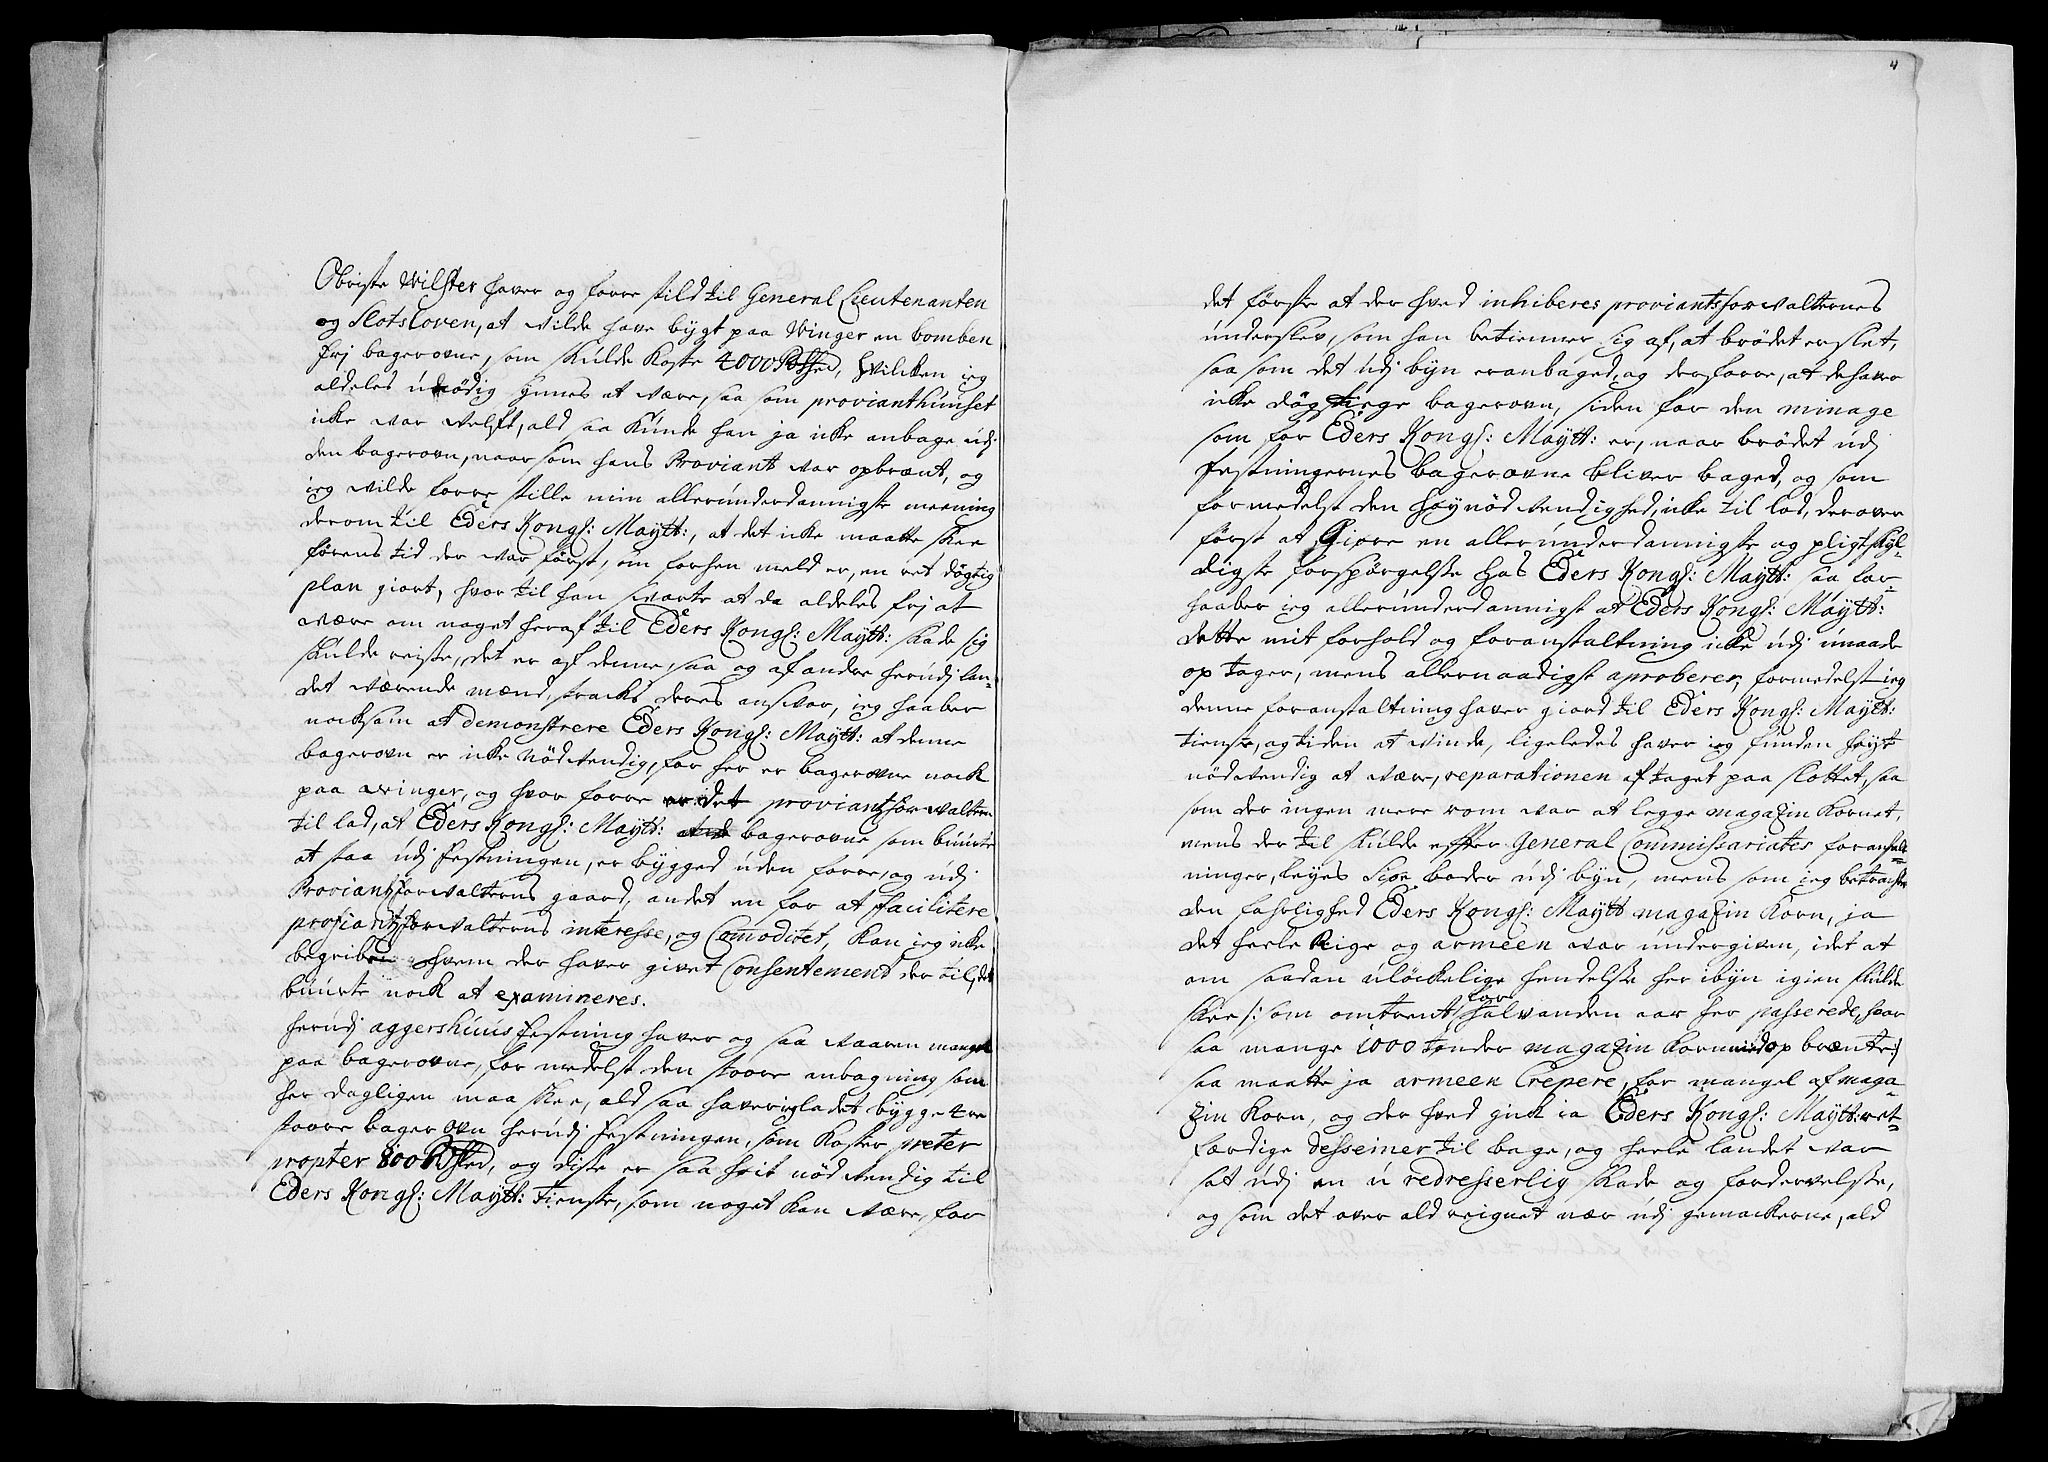 Obriste Wilster haver og forre stild til General Lieutenanten
og Slotsloven, at vilde have bygt paa Winger en bomben
frj bagerovne, som skulde koste 4000 Rdr, hvilcken ieg
aldeles unødig synes at være, saa som provianthuuset
icke var velft, ald saa kunde han ja icke anbage udj
den bagerovn, naar som hans Proviant var opbrænt, og
ieg vilde forre stille min allerunderdannigste meening
derom til Eders Kongl: Maytt:, at det icke maatte skee
førens tid der var først, om forhen meld er, en ret døgtig
plan giort, hvor til han svarte at da aldeles frj at
være om noget heraf til Eders Kongl: Maytt: skade sig
skulde reiste, det er af denne, saa og af andre herudj lan-
det værende mænd, stracks deres ansvar, ieg haaber
nocksom at demonstrere Eders Kongl: Maytt: at denne
bagerovn er icke nødvendig, for her er bagerovne nock
paa winger, og hvor forre er det proviantforwalteren
til lad, at Eders Kongl: Maytt: bagerovne som buurte
at staa udj festningen, er bygged uden forre, og udj
Proviantforwalterens gaard, andet en for at facilitere
proviantforwalterens interesse, og Comoditet, kan ieg icke
begribe hvem der haver givet Consentement der til, det
buurte nock at examineres.
herudj aggershuus festning haver og saa vaaren mangel
paa bagerovne, for medelst den stoore anbagning som
her dagligen maa skee, ald saa haver ieg ladet bygge tre
stoore bager ovn herudj festningen, som koster preter
propter 800 Rdr, og disse er saa høit nødvendig til
Eders Kongl: Maytt: tienste, som noget kan være, for
4
det første at der hved inhiberes proviantforwalternes
underslev, som han betienner sig af, at brødet er slet,
saa som det udj byn er anbaged, og derforre, at de haver
icke døgtige bagerovn, siden for den minage
som for Eders Kongl: Maytt: er, naar brødet udj
festningernes bagerovne bliver baged, og som
formedelst den høynødvendighed, icke til lod, derover
først at Giøre en allerunderdannigste og pligtskyl-
digste forspørgelse hos Eders Kongl: Maytt: saa for-
haaber ieg allerunderdannigst at Eders Kongl: Maytt:
dette mit forhold og foranstaltning icke udj unaade
op tager, mens allernaadigst aproberer, formedelst ieg
denne foranstaltning haver giord til Eders Kongl: Maytt:
tienste, og tiden at vinde, ligeledes haver ieg funden høyt
nødvendig at være, reparationen af taget paa slottet, saa
som der ingen mere rom var at legge magazin kornet,
mens der til skulde efter General Commissariates foranstalt-
ninger, leyes Siøe boder udj byn, mens som ieg betragte
den farlighed Eders Kongl: Maytt magazin korn, ja
det heele Rige og armeen var undergiven, idet at
om saadan uløckelige hendelse her ibyn igien skulde
skee /: som omtrent for halvanden aar her passerede, hvor
saa mange 1000 tønder magazin korn med op brænte:/
saa maatte ja armeen Crepere, for mangel af maga-
zin korn, og der hved gick ia Eders Kongl: Maytt: ret-
færdige desseiner til bage, og heele landet var
sat udj en u redresserlig skade og fordervelse,
og som det over ald reignet nær udj gemackerne, ald